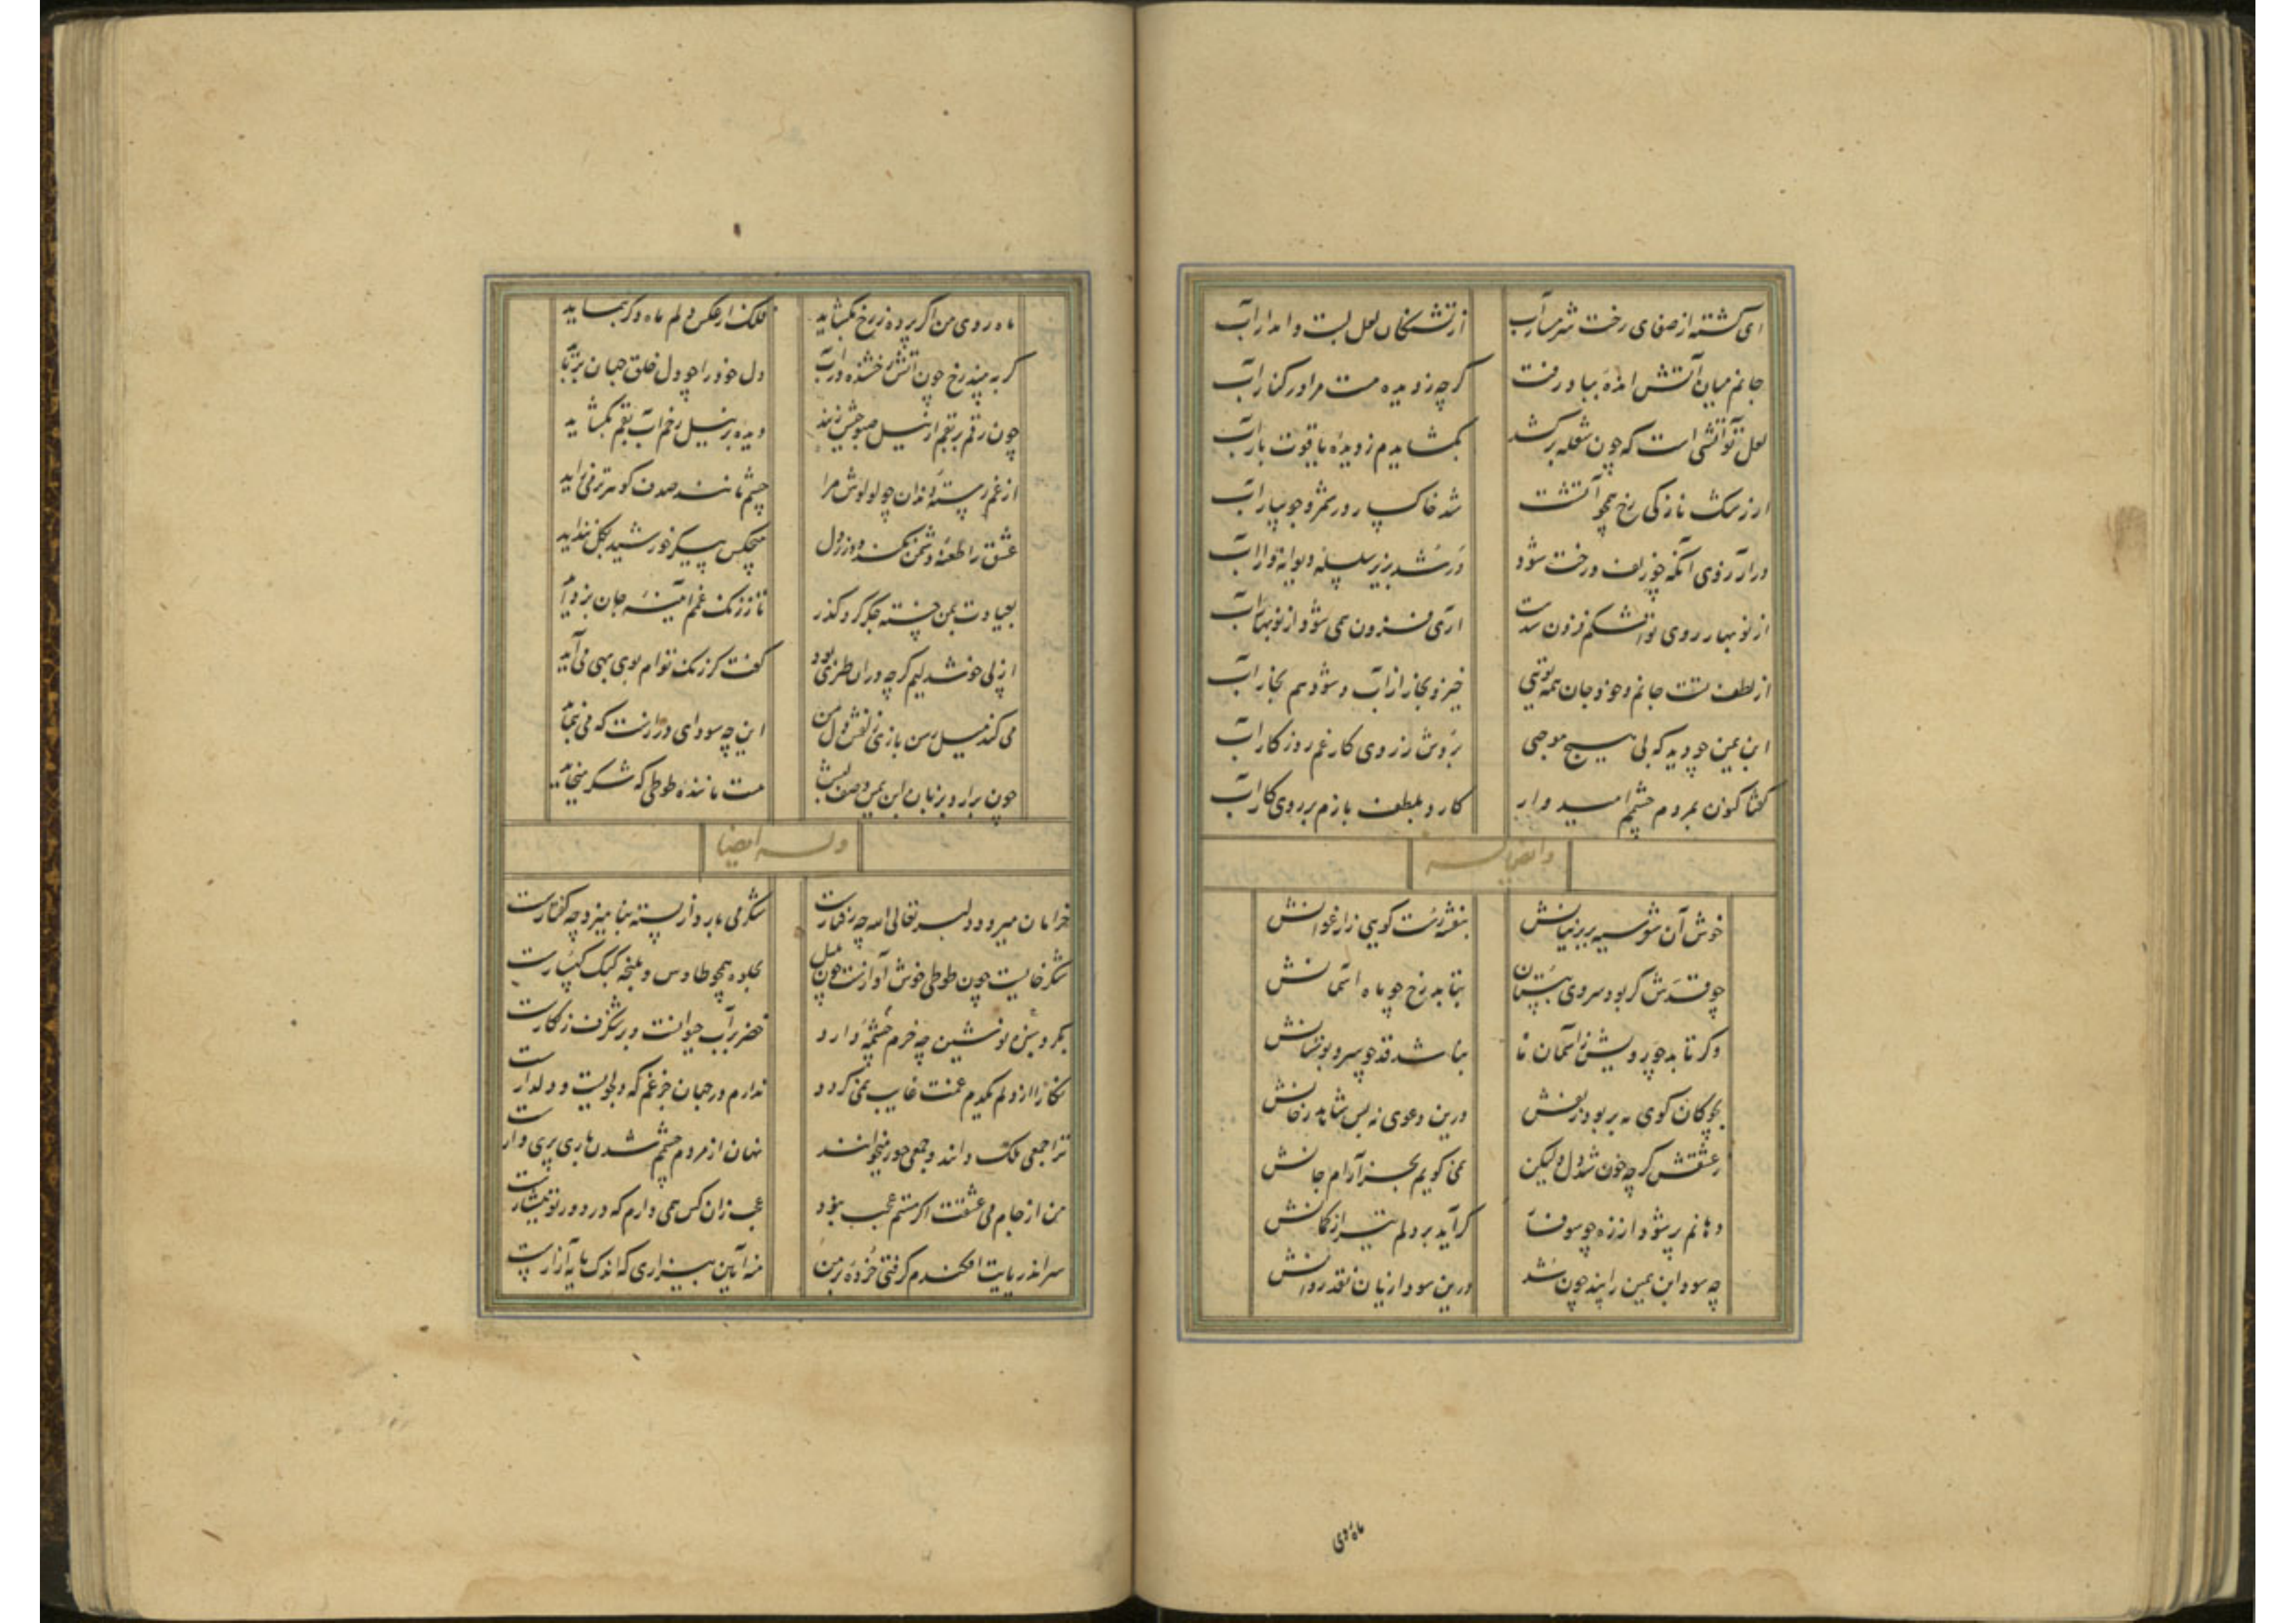 ای گشته از صفای رخت شرمسار آب
از تشنگان لعل لبت وامدار آب
جانم میان آتش اندوه بباد رفت
گرچه ز دیده هست مرا در کنار آب
لعل تو آتشی است که چون شعله برکشد
بگشایدم ز دیدهٔ یاقوت بار آب
از رشک نازکی رخ همچو آتشت
شد خاکسار در شمر و جویبار آب
در آرزوی آنکه چو زلف و رخت شود
در شد بزیر سلسله دیوانه‌وار آب
از نوبهار روی تو اشکم فزون شدست
آری فزون همی شود از نوبهار آب
از لطف تست جانم و خود جان همه تویی
خیزد بخار از آب و شود هم بخار آب
ابن یمین چو دید که بی هیچ موجبی
بردش ز روی کار غم روزگار آب
گفتا کنون بمردم چشم امیدوار
کارد بلطف بازم بر روی کار آب
وایضا له
خوش آن شوسیه بر پرنیانش
بنفشه رست گویی ز ارغوانش
چو قدش گر بود سروی ببستان
بتابد رخ چو ماه آسمانش
وگر تابد چو رویش ز آسمان ما
بباشد قد چو سرو بوستانش
بچوگان گوی مه بربود زلفش
درین دعوی نه بس شاهد رخانش
ز عشقش گرچه خون شد دل ولیکن
نمی گویم بجز آرام جانش
دهانم پر شود از زه چو سوفار
گر آید بر دلم تیر از کمانش
چه سود ابن یمین را پند چون شد
درین سودا زیان نقد روانش
ماه روی
ماه روی من اگر پرده ز رخ بگشاید
فلک از عکس دلم ماه دگر بنماید
گر ببیند رخ چون آتش رخشنده در آب
دل خود را چو دل خلق جهان برباید
چون رقم بر بقم از نیل صبوحیش زنند
دیده بر نیل رخم آب بقم بگشاید
از غم رستهٔ دندان چو لولوش مرا
چشم مانند صدف گوهر تر می زاید
عشق را طعنهٔ دشمن نکند دور ز دل
هیچکس پیکر خورشید بگل نندآید
بعیادت بمن خسته جگر کرد گذر
تا ز زنگ غمم آیینهٔ جان بزداید
از پی خوشدلیم گرچه در آن طنزی بود
گفت کز رنگ توام بوی بهی می آید
می کند میل رسن بازی زلفش دل من
این چه سودای درازست که می پیماید
چون براند بزبان ابن یمین وصف لبش
هست مانندهٔ طوطی که شکر میخاید
وله ایضا
خرامان میرود دلبر تعالی الله چه رفتارست
شکر می بارد از پسته بنامیزد چه گفتارست
شکرخایست چون طوطی خوش آوازست چون بلبل
بجلوه همچو طاوس و بخنده کبک کهسارست
بگرد سبزه نوشین چه خرم چشمهٔ دارد
خضر بر آب حیوانست و بر شنگرف زنگارست
نگارا از دلم یکدم غمت غایب نمی گردد
ندارم در جهان جز غم که دلجویست و دلدارست
ترا جمعی ملک دانند و جمعی حور میخوانند
نهان از مردم چشم شدن باری پری وارست
من از جام می عشقت اگر مستم عجب نبود
عجب زان کس همی دارم که در دور تو هشیارست
سر اندر پایت افکندم گرفتی خرده بر من
منه آیین بیزاری که اندک مایه آزارست